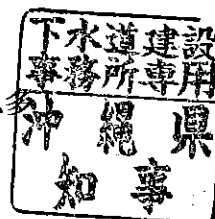 下水道建設
事務所専用
沖縄県
知事